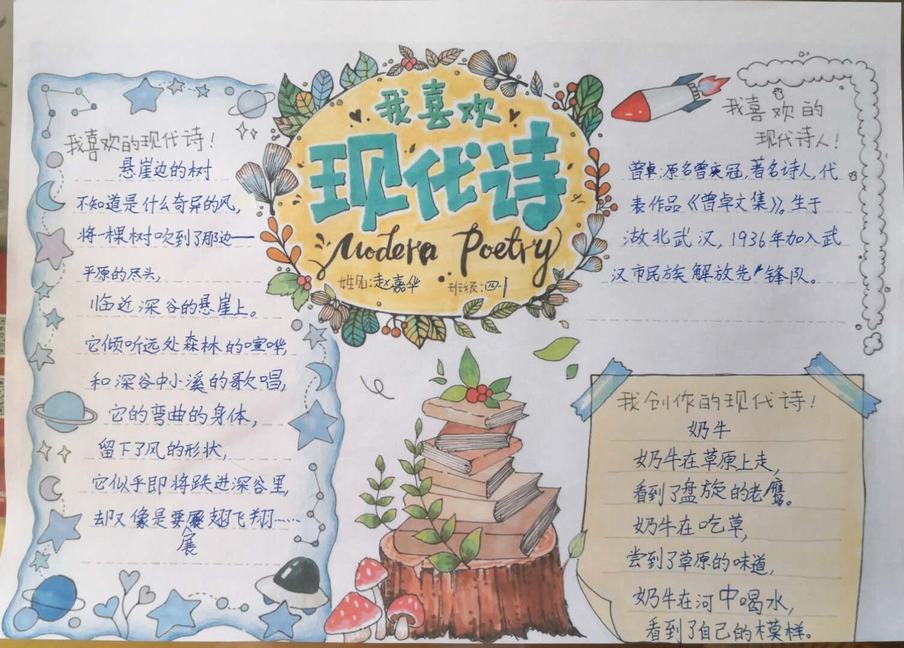 我喜欢
现代诗
Modern Poetry
姓名:赵嘉华 班级:四1
我喜欢的现代诗!
悬崖边的树
不知道是什么奇异的风,
将一棵树吹到了那边——
平原的尽头,
临近深谷的悬崖上。
它倾听远处森林的喧哗,
和深谷中小溪的歌唱,
它的弯曲的身体,
留下了风的形状,
它似乎即将跌进深谷里,
却又像是要展翅飞翔……
展
我喜欢的
现代诗人!
曾卓:原名曾庆冠,著名诗人,代
表作品《曾卓文集》。生于
湖北武汉,1936年加入武
汉市民族解放先锋队。
我创作的现代诗!
奶牛
奶牛在草原上走,
看到了盘旋的老鹰。
奶牛在吃草,
尝到了草原的味道,
奶牛在河中喝水,
看到了自己的模样。